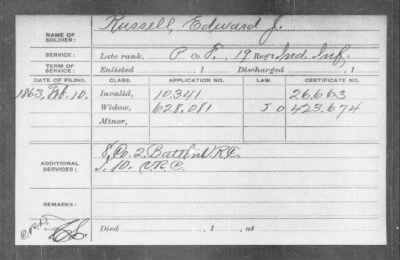 NAME OF SOLDIER: Russell, Edward J.
SERVICE: Late rank, P Co. F, 19 Reg't Ind. Inf.
TERM OF SERVICE: Enlisted , 1 Discharged , 1
DATE OF FILING. CLASS. APPLICATION NO. LAW. CERTIFICATE NO.
1863, Feb. 10. Invalid, 10,341 26,663
Widow, 628,081 J O 423,674
Minor,
ADDITIONAL SERVICES: 8, Co. 2 Batt'l
V.R.C.
REMARKS:
Died , 1 , at